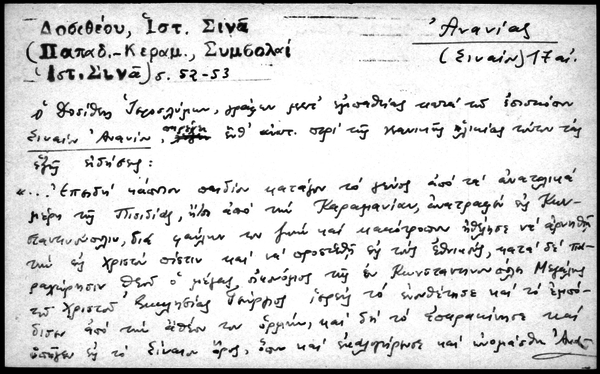 Δοσιθέου, Ἱστ. Σινᾶ
(Παπαδ.-Κεραμ., Συμβολαί
(Ἱστ. Σινᾶ) σ. 52-53
Ἀνανίας
(Σιναΐτ) 17 αἰ.
ὁ Δοσίθεος Ἱεροσολύμων, γράφων μετ' ἐμπαθείας κατὰ τοῦ ἐπισκόπου
Σιναΐου Ἀνανίου, παρέχει περὶ τῆς νεανικῆς ἡλικίας τούτου τὰς
ἑξῆς εἰδήσεις:
«... Ἐπειδὴ κάποιον παιδίον κατάγον τὸ γένος ἀπὸ τὰ ἀνατολικὰ
μέρη τῆς Πισιδίας, ἤτοι ἀπὸ τὴν Καραμανίαν, ἀνατραφὲν εἰς Κων-
σταντινούπολιν, διὰ φαύλην του ζωὴν καὶ κακότροπον ἠθέλησε νὰ ἀρνηθῇ
τὴν εἰς Χριστὸν πίστιν καὶ νὰ προστεθῇ εἰς τοὺς ἐθνικούς, κατὰ δὲ πα-
ραχώρησιν Θεοῦ ὁ μέγας οἰκονόμος τῆς ἐν Κωνσταντινουπόλει Μεγάλης
τοῦ Χριστοῦ Ἐκκλησίας Γεώργιος ἱερεὺς τὸ ἐνουθέτησε καὶ τὸ ἐμπό-
δισεν ἀπὸ τὴν ἄθεόν του ὁρμήν, καὶ δὴ τὸ ἐπαρακίνησε καὶ
ὑπῆγεν εἰς τὸ Σίναιον ὄρος, ὅπου καὶ ἐκαλογήρωσε καὶ ὠνομάσθη Ἀναν-